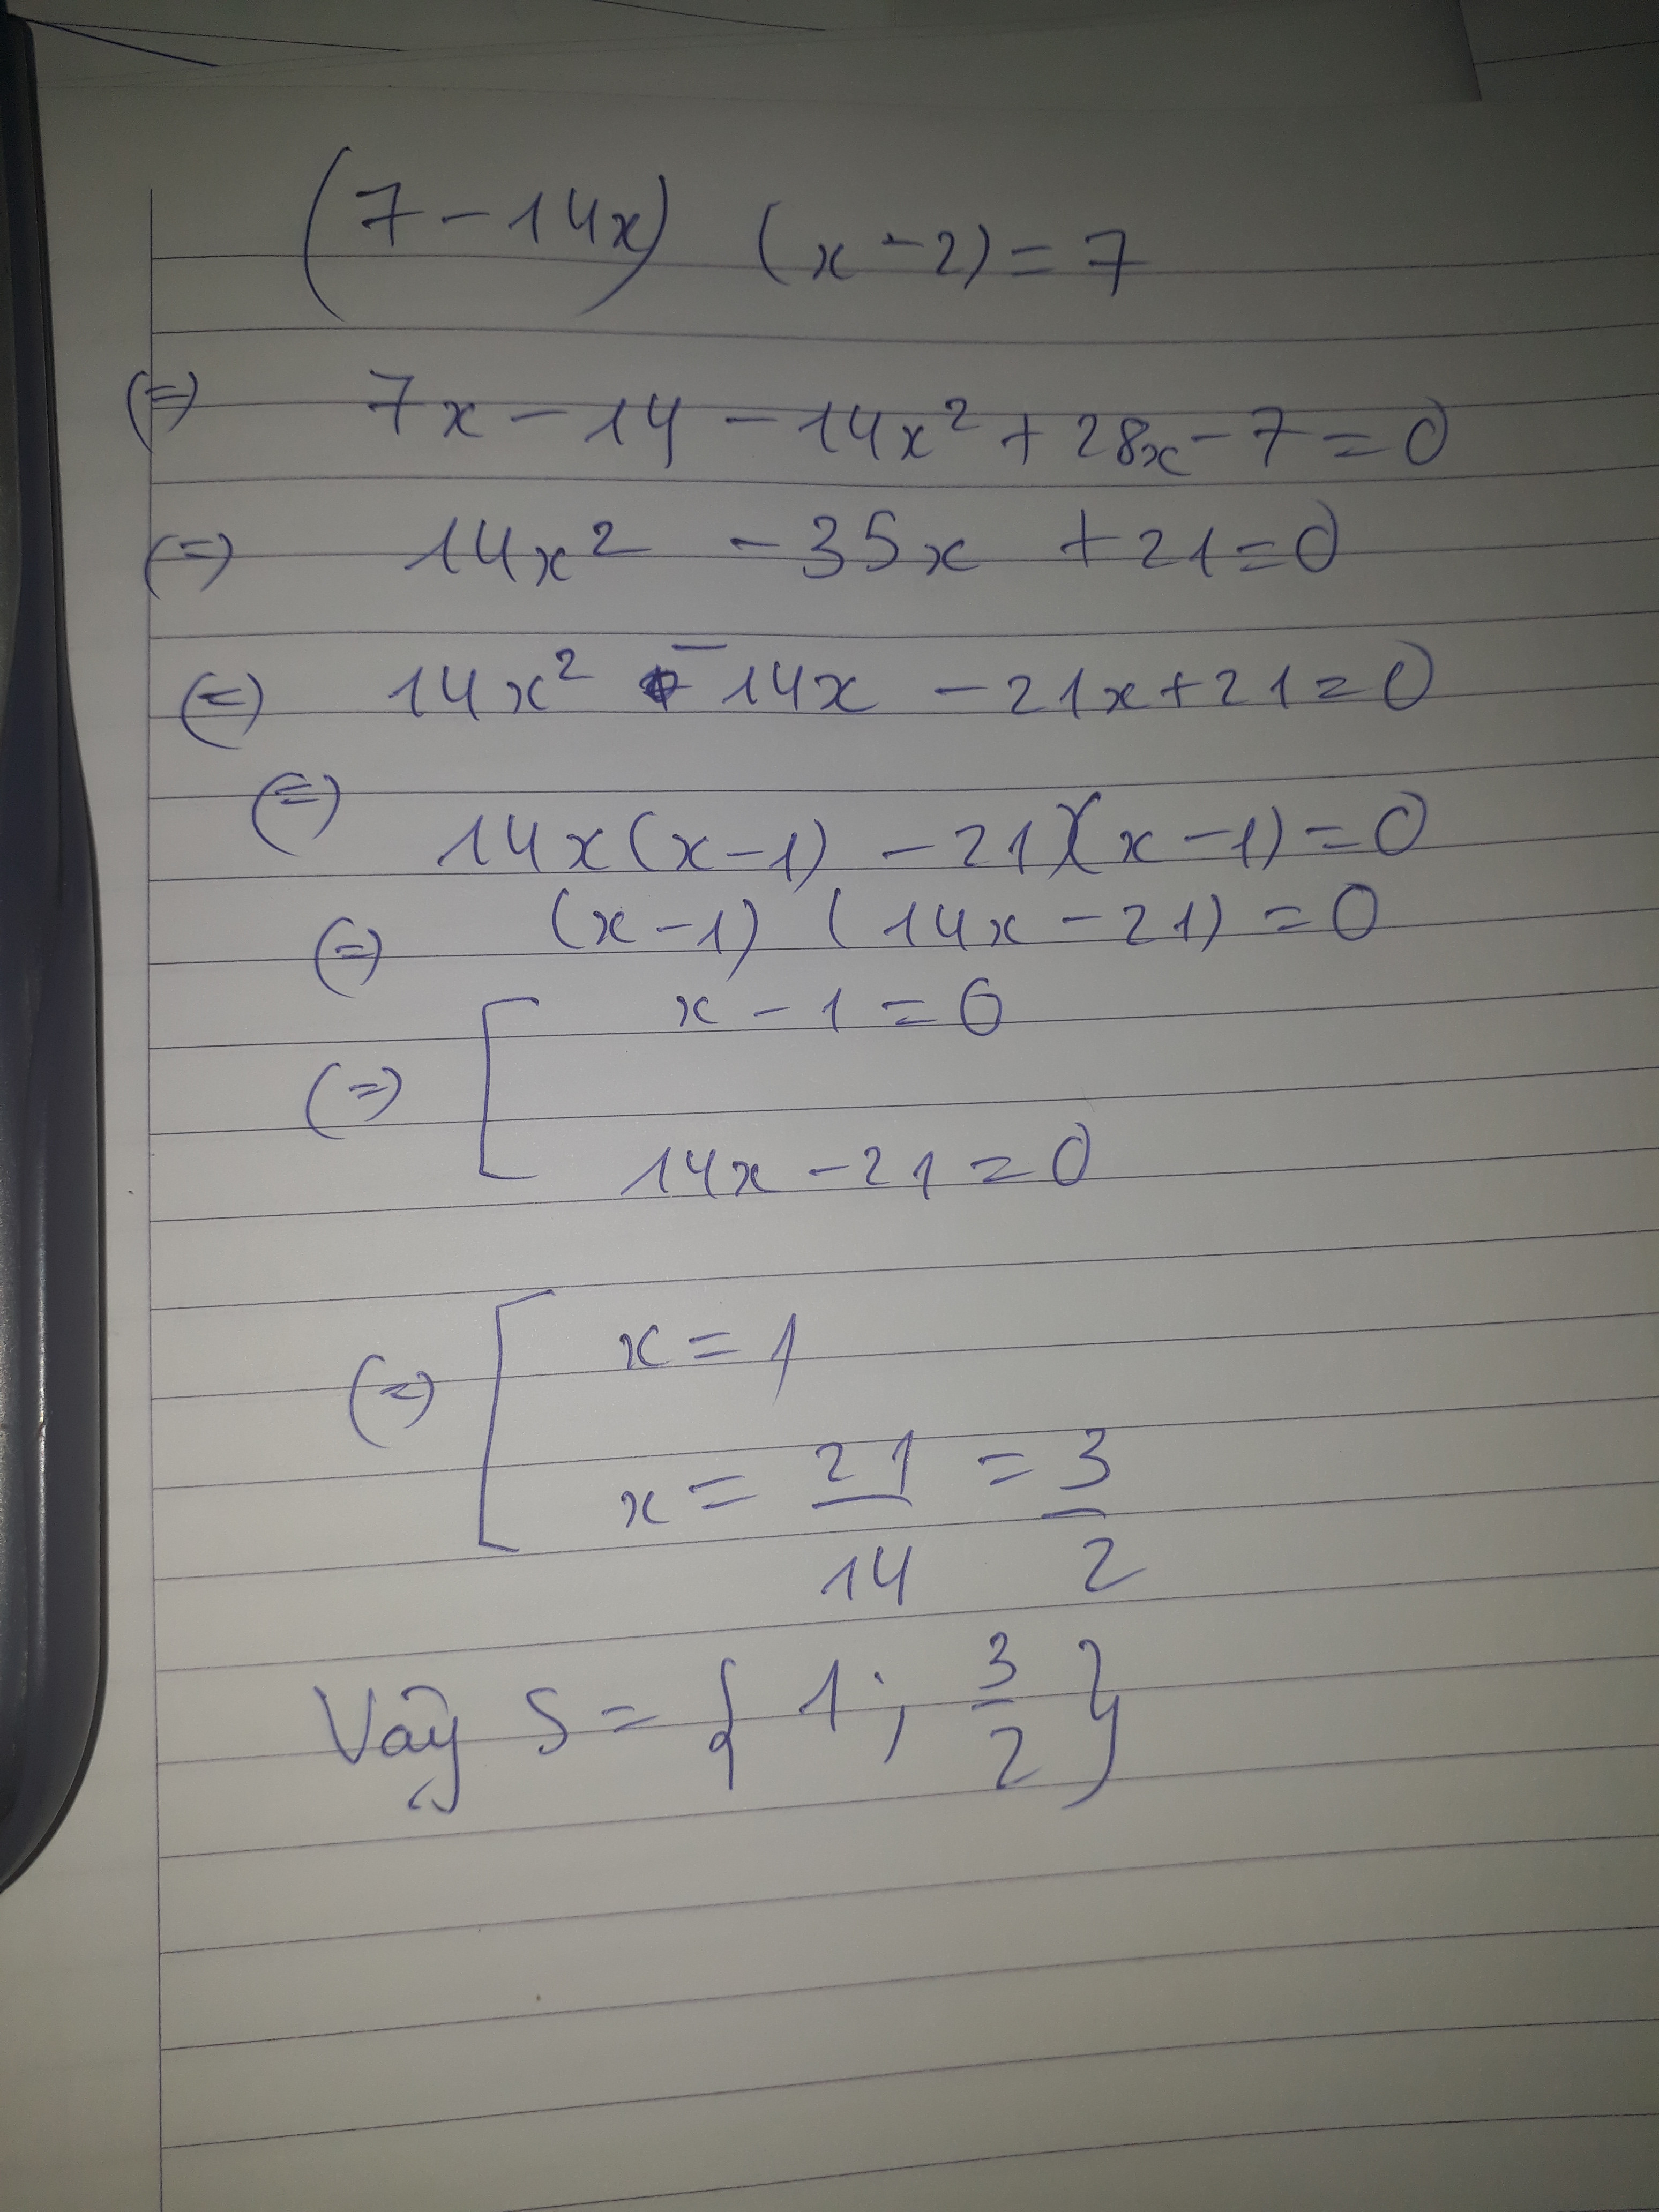 (7 - 14x) (x - 2) = 7
(=) 7x - 14 - 14x² + 28x - 7 = 0
(=) 14x² - 35x + 21 = 0
(=) 14x² - 14x - 21x + 21 = 0
(=) 14x(x-1) - 21)(x-1) = 0
(=) (x-1) (14x - 21) = 0
(=) [ x - 1 = 0
14x - 21 = 0
(=) [ x = 1
x = 21/14 = 3/2
Vậy S = { 1 ; 3/2 }